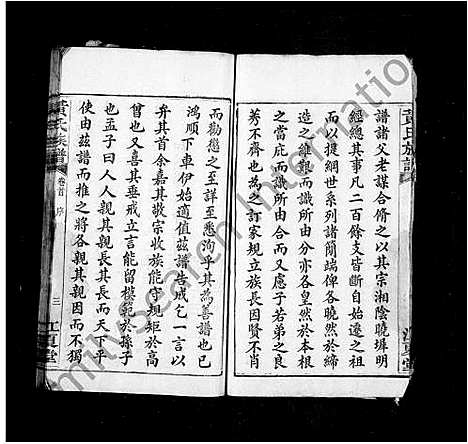 黃氏族譜
江夏堂
譜諸父老謀合脩之以其宗湘陰曉墀明
經總其事凡二百餘支皆斷自始遷之祖
而以提綱世系列諸簡端俾各曉然於締
造之維艱而識所由分亦各皇然於本根
之當庇而識所由合而又應子若弟之良
莠不齊也為之訂家規立族長因賢不肖
而勸懲之至詳至悉洵乎其為善譜也已
鴻順下車伊始適值茲譜告成乞一言以
弁其首余嘉其敬宗收族能守規矩於高
曾也又喜其垂戒立言能留模範於孫子
也孟子曰人人親其親長其長而天下平
使由茲譜而推之將各親其親因而不獨
黃氏族譜
卷首
序
三
江夏堂
FamilySearch International